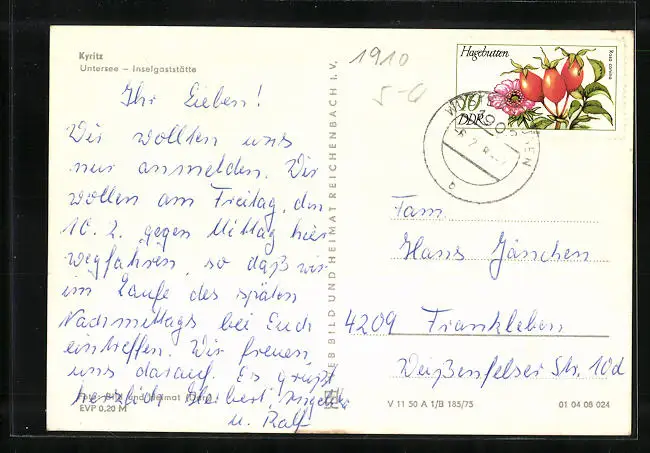 Kyritz
Untersee – Inselgaststätte
1910
Ihr Lieben!
Wir wollten uns
nur anmelden. Wir
wollen am Freitag, den
10. 2. gegen Mittag hier
wegfahren, so daß wir
im Laufe des späten
Nachmittags bei Euch
eintreffen. Wir freuen
uns darauf. Es grüßt
herzlich
u. Ralf
EVP 0,20 M
BILD UND HEIMAT REICHENBACH I. V.
Hagebutten
Rosa canina
DDR
Fam.
Hans Jänchen
4209 Frankleben
Weißenfelser Str. 10d
V 11 50 A 1/B 185/75
01 04 08 024